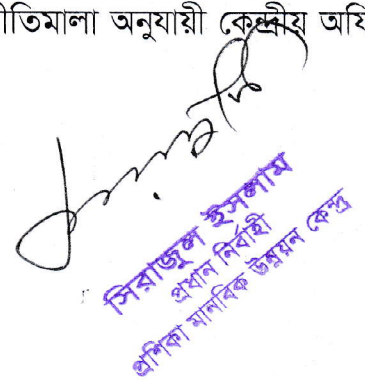 নীতিমালা অনুযায়ী কেন্দ্রীয় অফি
সিরাজুল ইসলাম
প্রধান নির্বাহী
প্রশিকা মানবিক উন্নয়ন কেন্দ্র